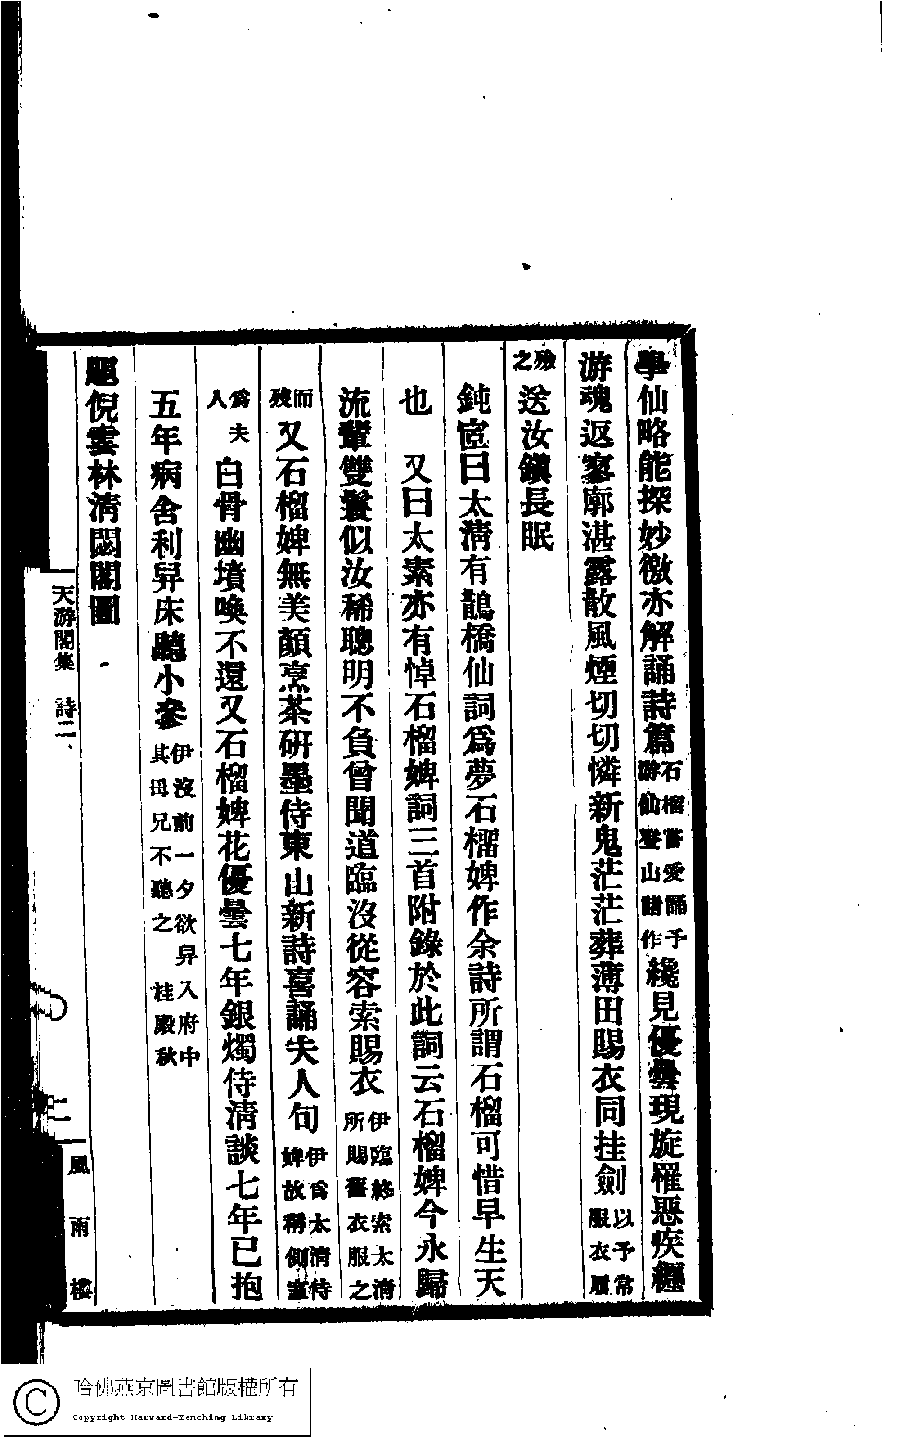 學仙略能探妙徼亦解誦詩篇石榴嘗愛誦予游仙登山諸作纔見優曇現旋罹惡疾纒
游魂返寥廓湛露散風煙切切憐新鬼茫茫葬薄田賜衣同挂劍以予常服衣履
殮之送汝鎭長眠
鈍宧曰太淸有鵲橋仙詞爲夢石榴婢作余詩所謂石榴可惜早生天
也　又曰太素亦有悼石榴婢詞三首附錄於此詞云石榴婢今永歸
流輩雙鬟似汝稀聰明不負曾聞道臨沒從容索賜衣伊臨終索太淸所賜舊衣服之
而殘又石榴婢無美顏烹茶硏墨侍東山新詩喜誦夫人句伊爲太淸侍婢故稱側室
爲夫人白骨幽墳喚不還又石榴婢花優曇七年銀燭侍淸談七年已抱
五年病舍利舁床聽小參伊沒前一夕欲舁入府中其母兄不聽之桂殿秋
題倪雲林淸閟閣圖
天游閣集　詩二
二
風雨樓
哈佛燕京圖書館版權所有
Copyright Harvard-Yenching Library